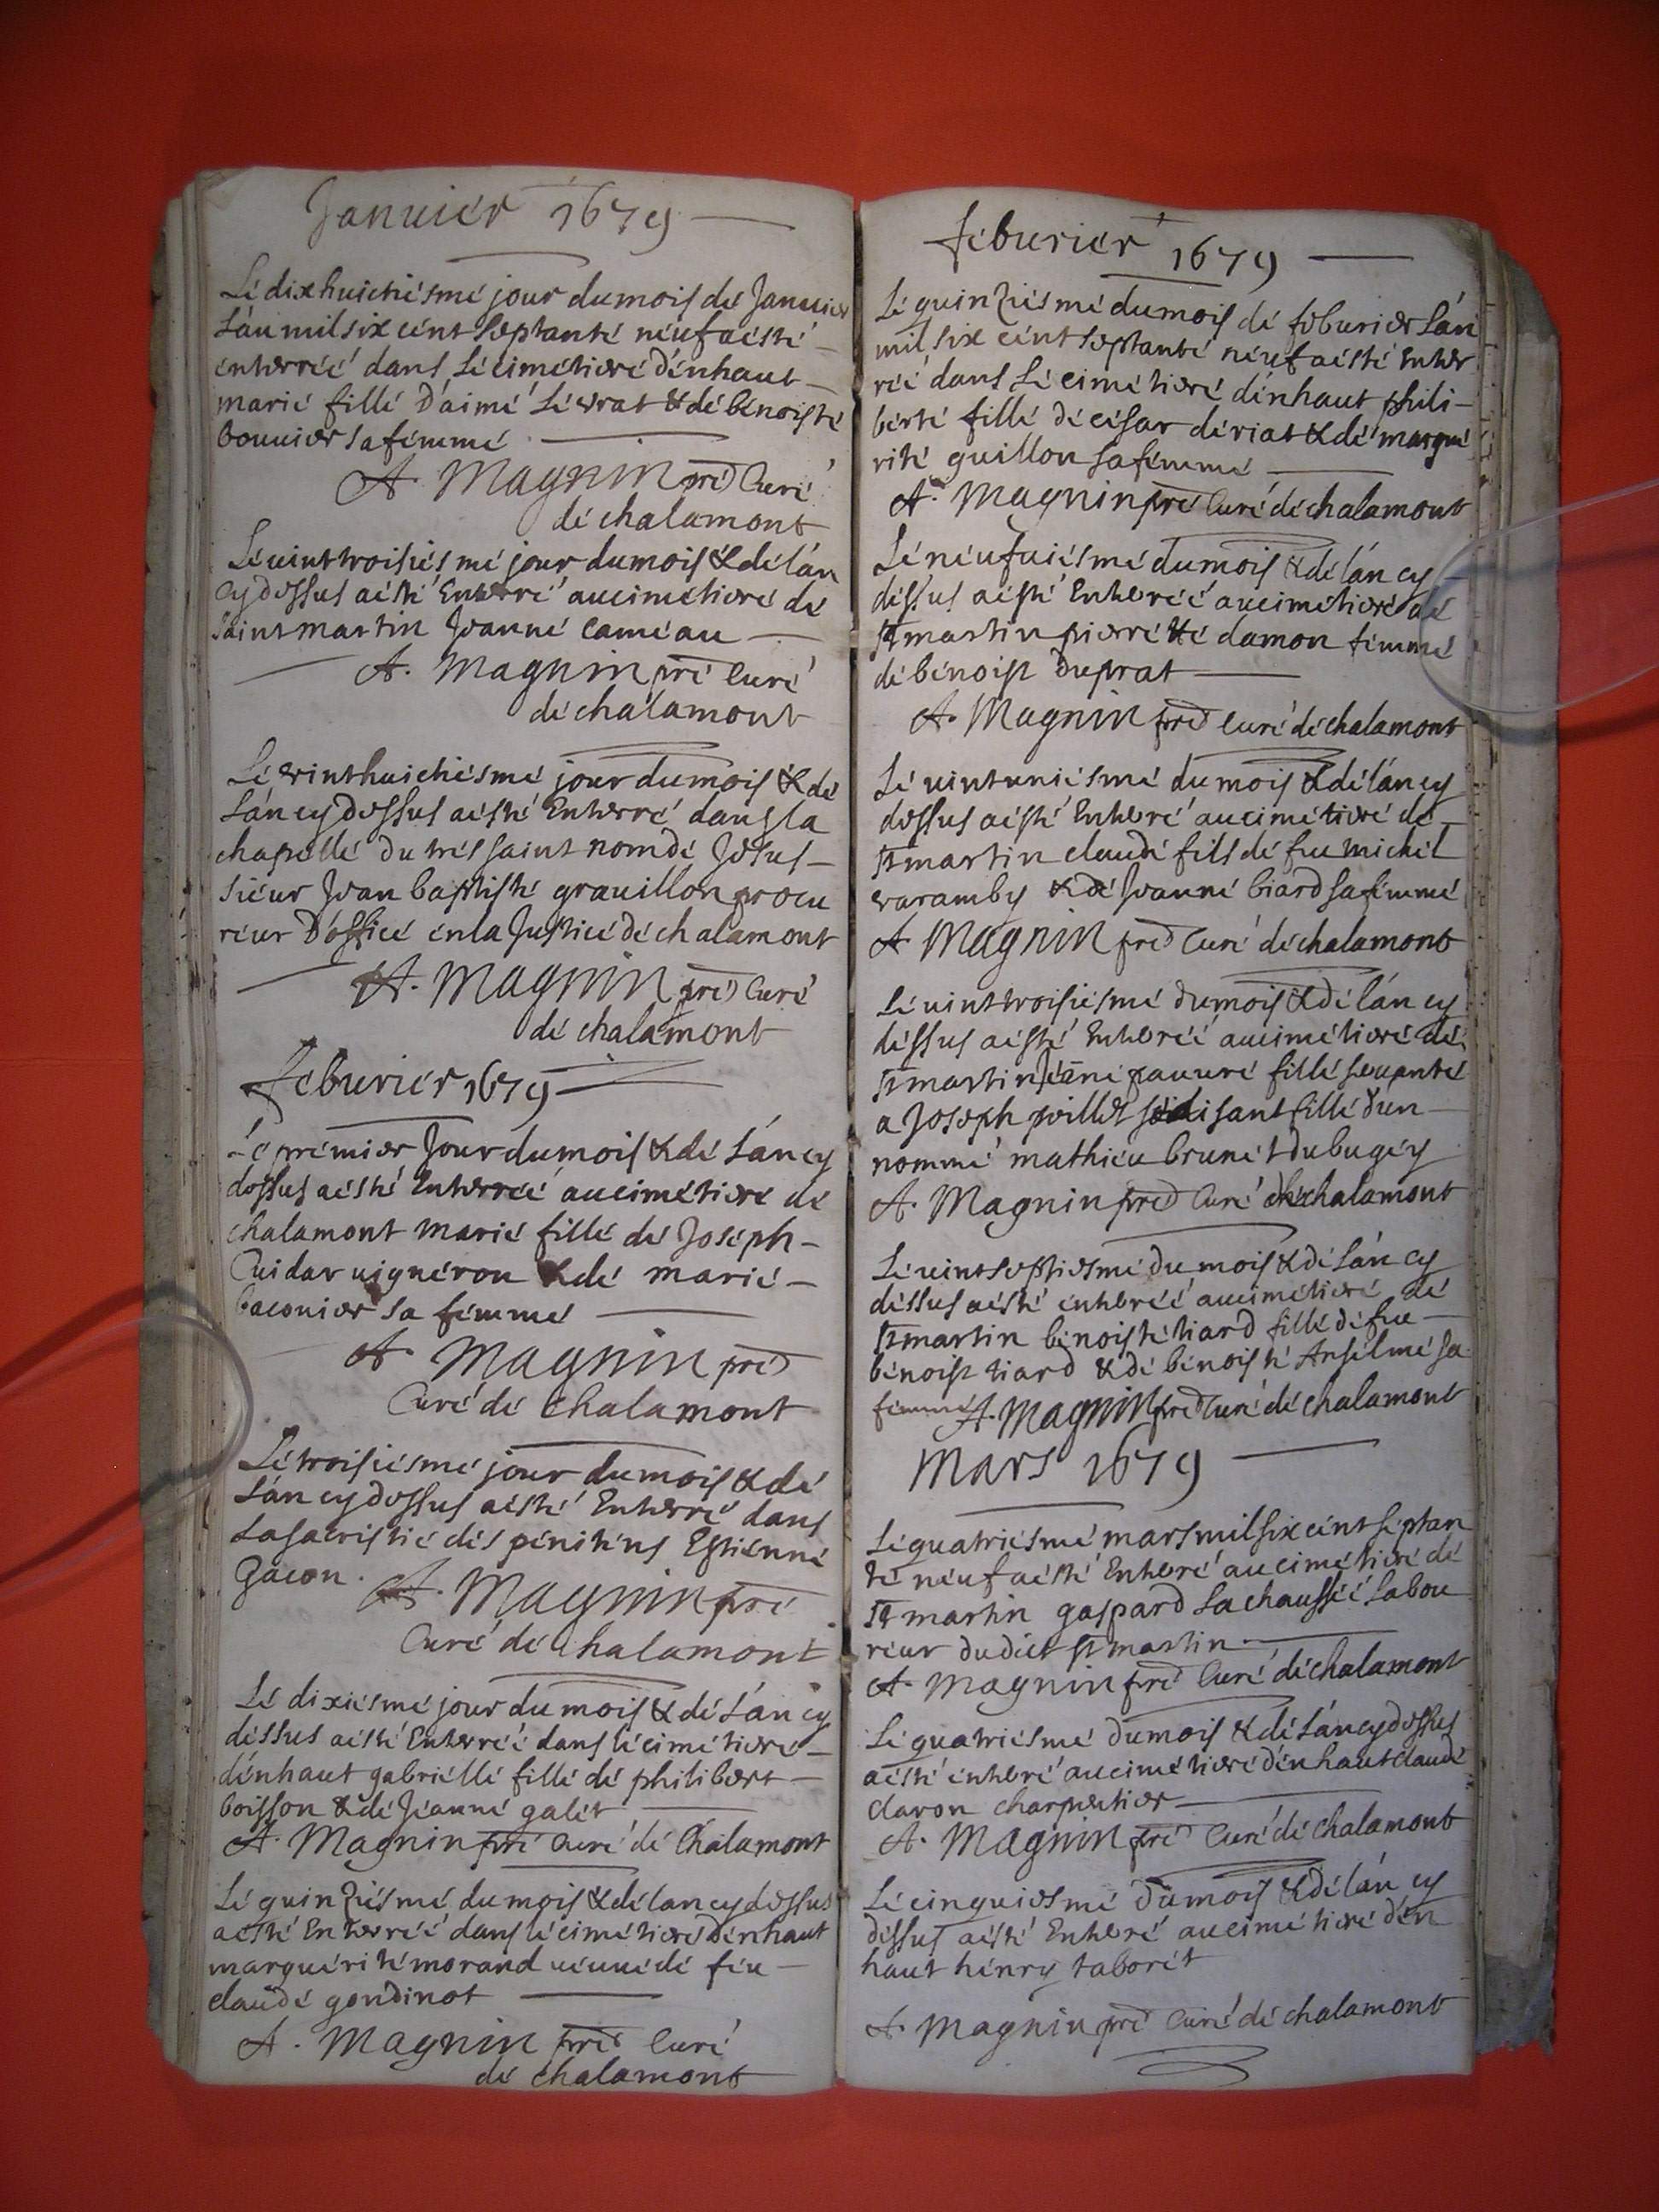 Januiér 1679
Lé dix huictiésmé jour du mois dé Januier
Lán mil six cént septanté néuf a ésté
énterréé dans Lé cimétieré d'énhaut
marié fillé d'aimé Léurat & dé bénoisté
bouuier sa fémmé
A. Magnin pré Curé
dé chalamont
Lé uint troisiésmé jour du mois & dé lán
cy dessus a ésté Enterré au cimétieré dé
saint martin Jeanné caméau
A. Magnin pré Curé
dé chalamont
Lé vint huictiésmé jour du mois & dé
Lán cy dessus a ésté Enterré dans la
chapéllé du trés saint nom dé Jesus
siéur Jean baptisté grauillon procu
réur d'officé én la Justicé dé chalamont
A. Magnin pré Curé
dé chalamont
féburiér 1679
Lé prémier Jour du mois & dé Lán cy
dessus a ésté Enterréé au cimétieré dé
chalamont marié fillé dé Joséph
Cuidar uignéron & dé marié
baconier sa fémmé
A. Magnin pré
Curé dé Chalamont
Lé troisiésmé jour du mois & dé
Lán cy dessus a ésté Enterré dans
La sacristié dés péniténs Estiénné
Gacon.
A. Magnin pré
Curé dé Chalamont
Lé dixiésmé jour du mois & dé Lán cy
déssus a ésté Enterréé dans lé cimétieré
d'énhaut gabriéllé fillé dé philibert
boisson & dé Jéanné galét
A. Magnin pré Curé dé Chalamont
Lé quinziésmé du mois & dé lan cy dessus
a ésté Enterréé dans lé cimétieré d'énhaut
marguérité morand uéuué dé féu
claudé gondinot
A. Magnin pré Curé
dé chalamont
féburiér 1679
Lé quinziésmé du mois dé féburier Lán
mil six cént septanté néuf a ésté Enter
réé dans Lé cimétieré d'énhaut phili-
bérté fillé dé césar dériat & dé margué
rité guillon sa fémmé
A. Magnin pré Curé dé chalamont
Lé néufuiésmé du mois & dé lán cy
déssus a ésté Enteréé au cimétieré dé
st martin pierrétté damon fémmé
dé bénoist duprat
A. Magnin pré Curé dé chalamont
Lé uint uniésmé du mois & dé lán cy
dessus a ésté Enteré au cimétieré dé
st martin claudé fils dé feu michél
varamby & dé Jeanné biard sa fémmé
A. Magnin pré Curé dé chalamont
Lé uint troisiésmé du mois & dé lán cy
déssus a ésté Enteréé au cimétieré dé
st martin pauuré fillé seruanté
a Joséph poillet sé disant fillé d'un
nommé mathiéu brunét du bugéy
A. Magnin pré Curé dé chalamont
Lé uint septiésmé du mois & dé Lán cy
déssus a ésté énteréé au cimétieré dé
st martin bénoisté liard fillé dé feu
bénoist liard & dé bénoisté Ansélmé sa
fémmé A. Magnin pré Curé dé chalamont
Mars 1679
Lé quatriésmé mars mil six cént séptan
té néuf a ésté Enteré au cimétieré dé
st martin gaspard Lachausséé Labou
réur dudict st martin
A. Magnin pré Curé dé chalamont
Lé quatriésmé du mois & dé Lán cy dessus
a ésté énteré au cimétieré d'énhaut claudé
clauon charpentier
A. Magnin pré Curé dé chalamont
Lé cinquiesmé du mois & dé lán cy
déssus a ésté Enteré au cimétieré d'én
haut hénry taborét
A. Magnin pré Curé dé chalamont